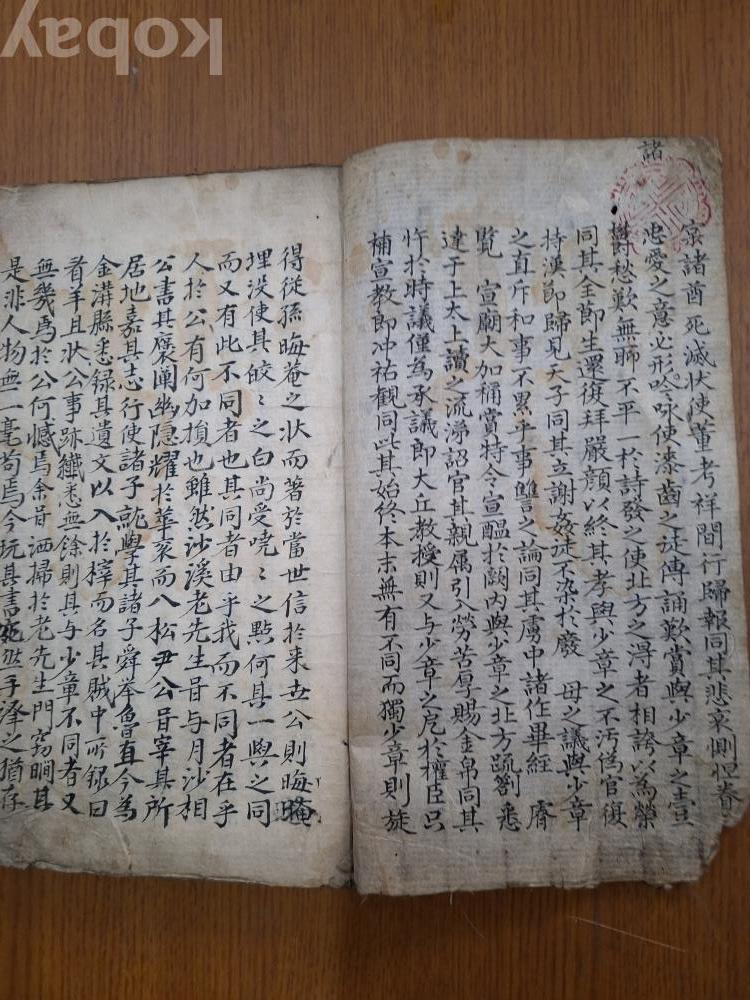 kobay
諸
宗諸酋死滅狀使董考祥間行歸報同其悲哀惻怛眷
忠愛之意必形吟咏使漆齒之徒傳誦歎賞與少章之壹
欝愁歎無聊不平一於詩發之使北方之淂者相誇以爲榮
同其全節生還復拜嚴顔以終其孝與少章之不汚僞官復
持漢節歸見天子同其立謝姦徒不染於廢 母之議與少章
之直斥和事不累乎事讐之論同其虜中諸作畢經 睿
覽 宣廟大加稱賞特令宣醞於闕內與少章之北方疏劄悉
達于上太上讀之流涕詔官其親属引入勞苦厚賜金帛同其
忤於時議僅爲承議郎大丘教授則又与少章之戹於權臣只
補宣教郎冲祐觀同此其始終本末無有不同而獨少章則旋
得從孫晦菴之狀而著於當世信於来世公則晦
埋没使其皎〻之白尚受哓〻之點何其一與之同
而又有此不同者也其同者由乎我而不同者在乎
人於公有何加損也雖然沙溪老先生昔与月沙相
公書其襃闡幽隱耀於華衮而八松尹公昔宰其所
居地嘉其志行使諸子就學其諸子舜擧魯直今爲
金溝縣悉録其遺文以入於梓而名其賊中所録曰
看羊且狀公事跡纎悉無餘則其与少章不同者又
無幾焉於公何憾焉余昔洒掃於老先生門竊瞯其
是非人物無一毫苟焉今玩其書 手澤之猶存